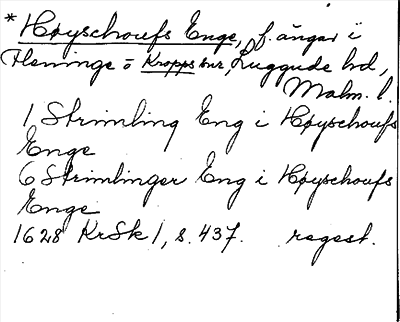 * Høyschoufs Enge, f. ängar i
Fleninge o Kropps snr, Luggude hd,
Malm. l.
1 Strimling Eng i Høyschoufs
Enge
6 Strimlinger Eng i Høyschoufs
Enge
1628 KrSk 1, s. 437. regest.